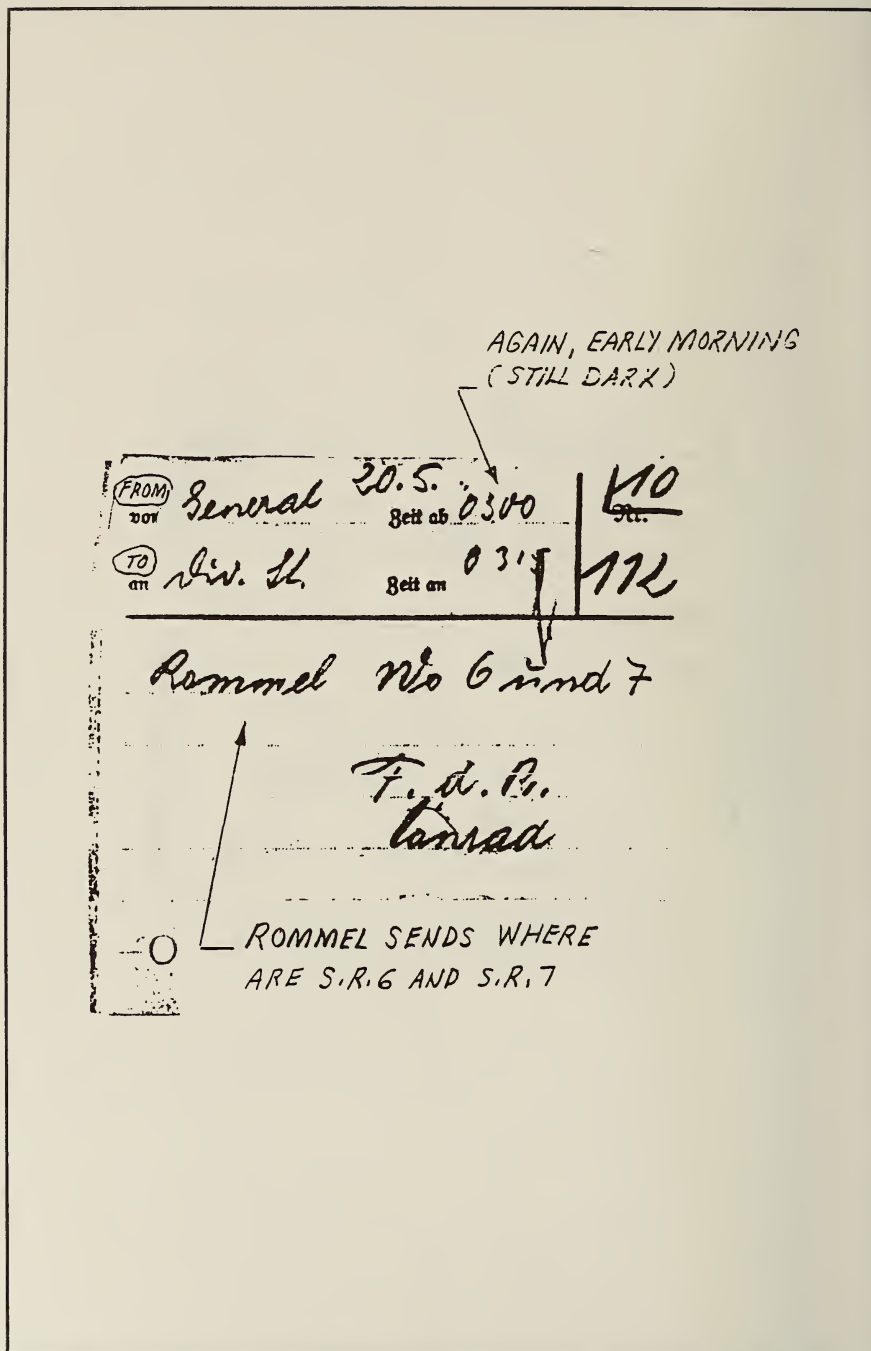 AGAIN, EARLY MORNING
(STILL DARK)
FROM
von General 20.5. Zeit ab 0300 Nr.
TO
an Div. St. Zeit an 0315 112
Rommel Wo 6 und 7
F. d. R.
Conrad
ROMMEL SENDS WHERE
ARE S.R.6 AND S.R.7